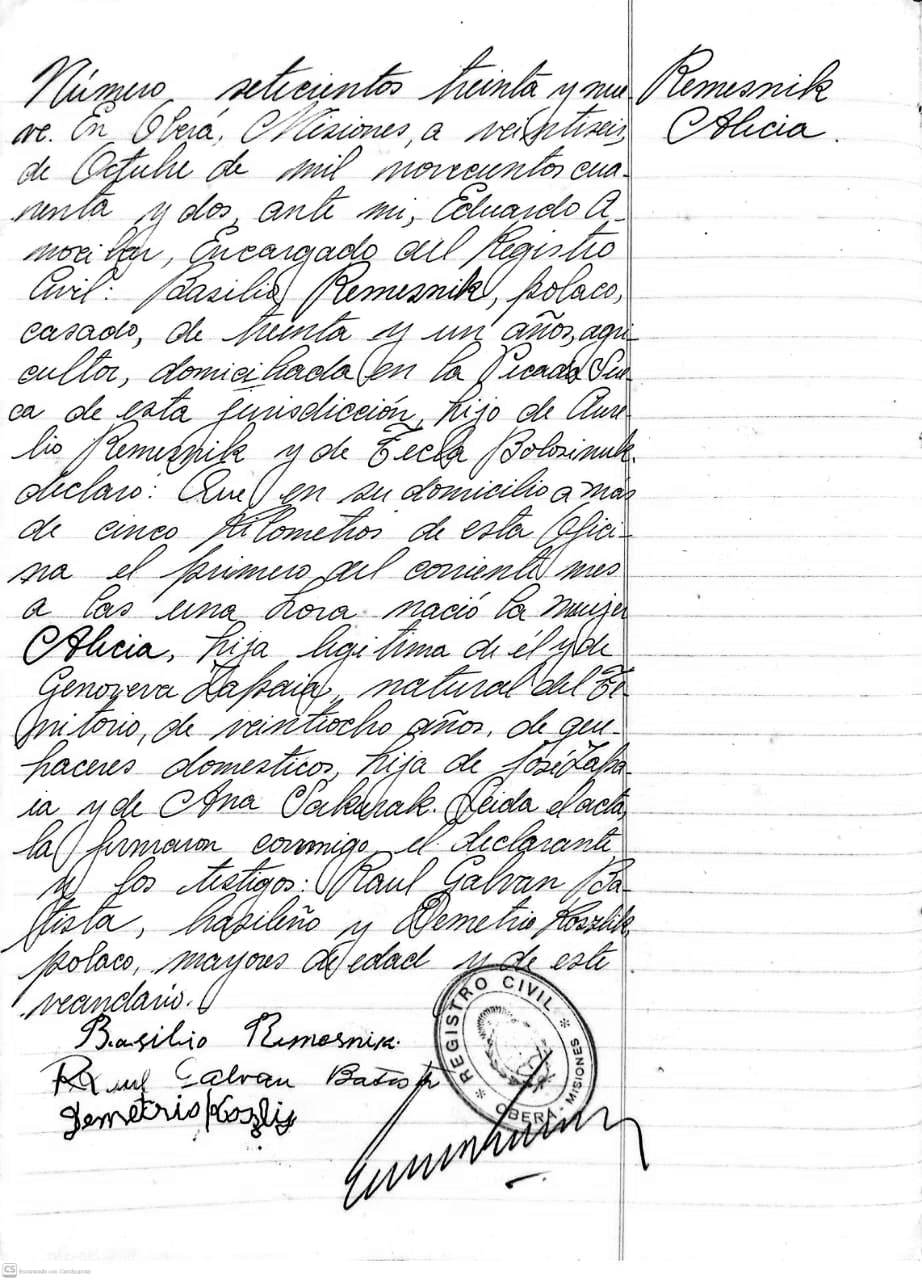 Número seticientos treinta y nue-
ve. En Oberá, Misiones, a veintiseis
de Octubre de mil novecientos cua-
renta y dos, ante mi, Eduardo A-
mocibar, Encargado del Registro
Civil: Basilio Remesnik, polaco,
casado, de treinta y un años, agri
cultor, domiciliada en la Picada Sue-
ca de esta jurisdicción, hijo de Aure-
lio Remesnik y de Tecla Bolosinuk.
declaró: Que en su domicilio a más
de cinco Kilometros de esta Ofici-
na el primero del corriente mes
a las una hora nació la mujer
Alicia, hija legitima de él y de
Genoveva Zapaia, natural del Te-
rritorio, de veintiocho años, de que-
haceres domesticos, hija de José Zapa-
ia y de Ana Sakurak. Leida el acta,
la firmaron conmigo, el declarante
y los testigos: Raul Galvan Ba-
tista, brasileño y Demetrio Koszlik,
polaco, mayores de edad y de este
vecindario.
Remesnik
Alicia.
Basilio Remesnik.
Raul Galvan Batista
Demetrio Kozlig
REGISTRO CIVIL
OBERÁ - MISIONES
CS Escaneado con CamScanner